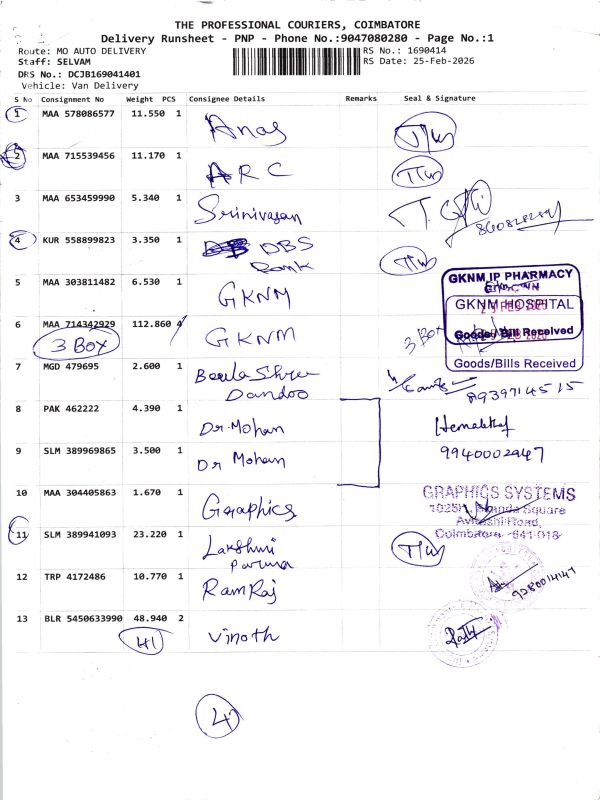 THE PROFESSIONAL COURIERS, COIMBATORE
Delivery Runsheet - PNP - Phone No.:9047080280 - Page No.:1
Route: MO AUTO DELIVERY
RS No.: 1690414
Staff: SELVAM
RS Date: 25-Feb-2026
DRS No.: DCJB169041401
Vehicle: Van Delivery
S No Consignment No Weight PCS Consignee Details Remarks Seal & Signature
1 MAA 578086577 11.550 1 Anas
2 MAA 715539456 11.170 1 ARC
3 MAA 653459990 5.340 1 Srinivasan
4 KUR 558899823 3.350 1 DBS
Bank
5 MAA 303811482 6.530 1 GKNM
GKNM IP PHARMACY
GKNM HOSPITAL
Goods/Bill Received
6 MAA 714342929 112.860 4 GKNM 3 Box
3 Box
Goods/Bills Received
7 MGD 479695 2.600 1
Dandoo
8939714515
8 PAK 462222 4.390 1 Dr. Mohan
9 SLM 389969865 3.500 1 Dr Mohan 9940002947
10 MAA 304405863 1.670 1 Graphics
GRAPHICS SYSTEMS
Square
Avinashi Road,
Coimbatore - 641 018
11 SLM 389941093 23.220 1 Lakshmi
12 TRP 4172486 10.770 1 RamRaj
9280014147
13 BLR 5450633990 48.940 2 Vinoth
41